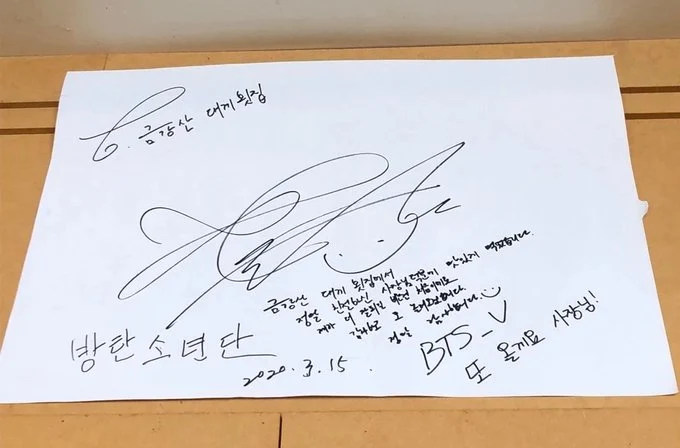 To. 금강산 대게횟집
금강산 대게횟집에서
정말 친절하신 사장님 덕분에 맛있게 먹었습니다.
제가 더 잘되고 번
감사
정말 감사합니다
방탄소년단
BTS_V
2020. 3. 15.
또 올게요 사장님!